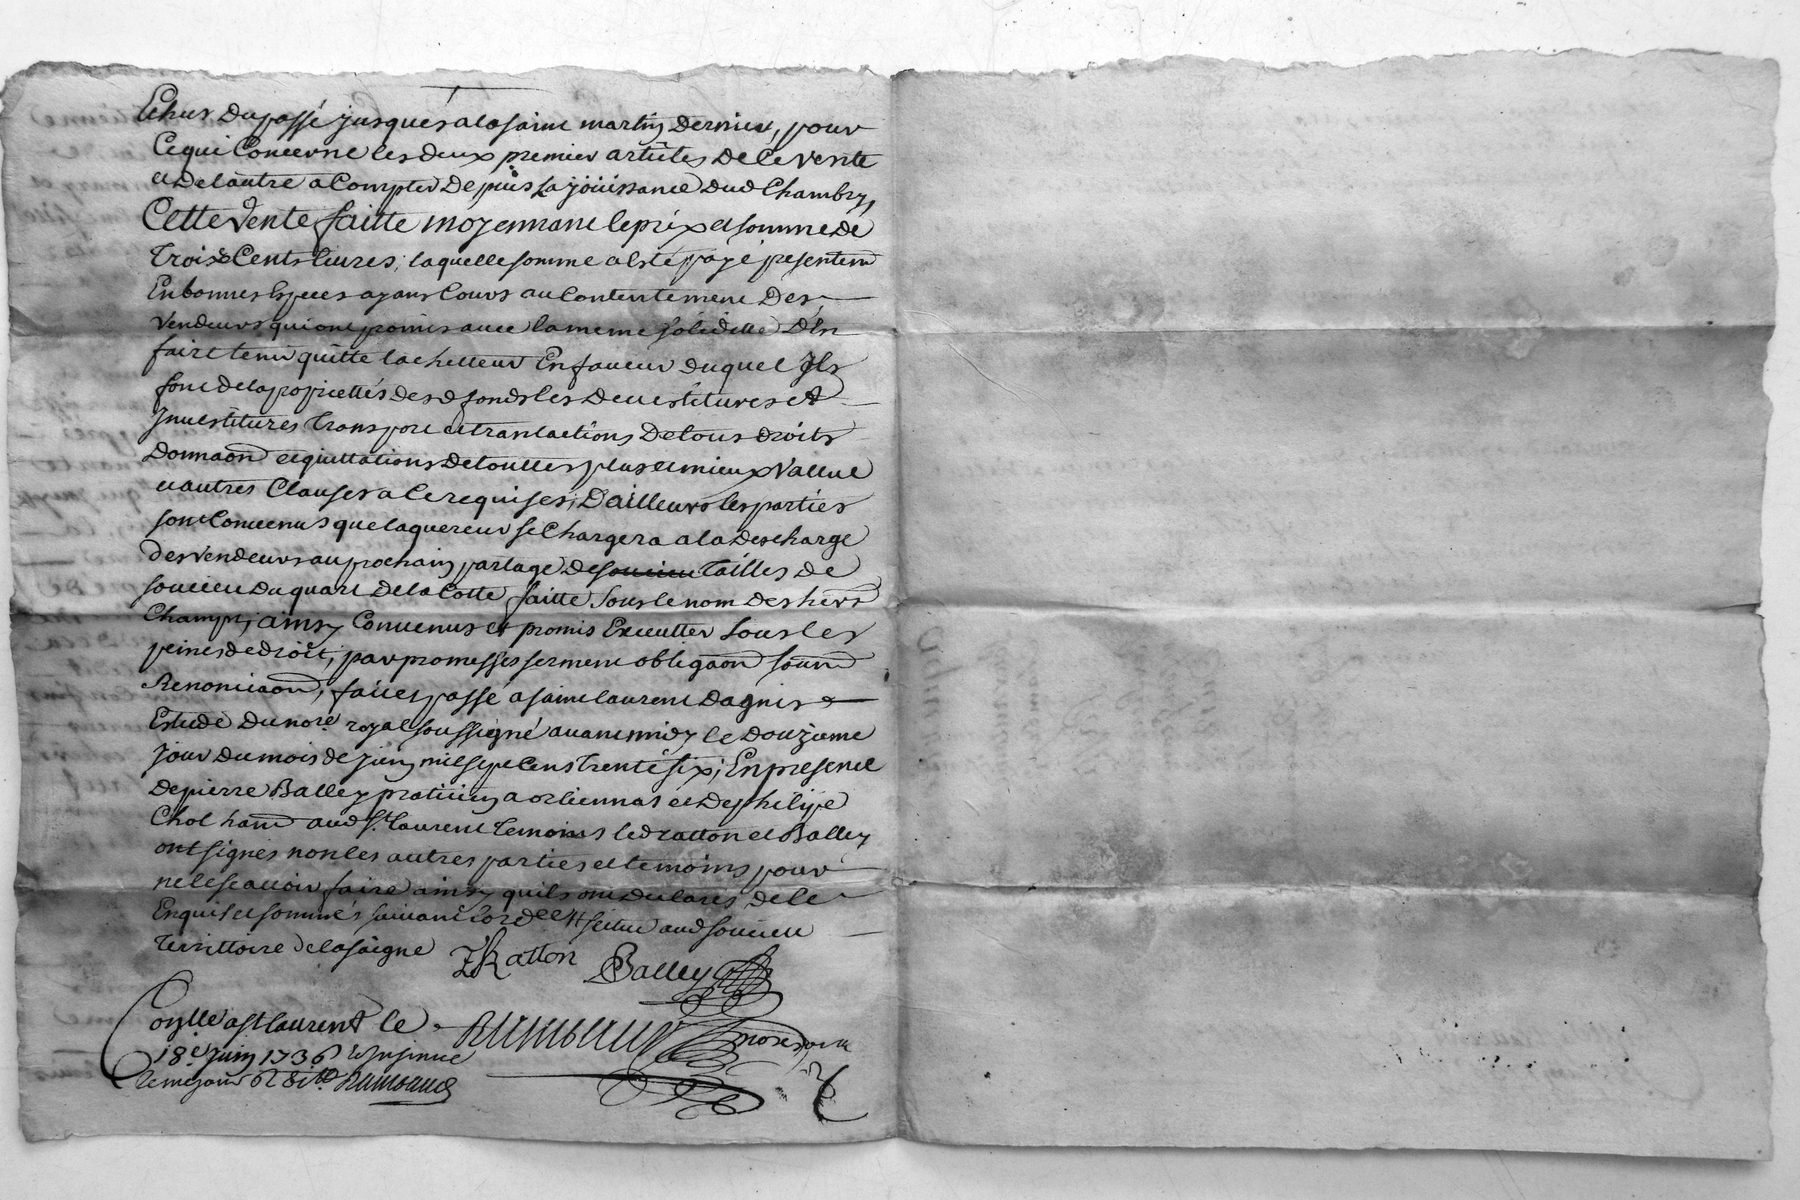 Echus du passé jusques a la saint martin dernier, pour
Ce qui Concerne les deux premier articles de Ce vente
et de lautre a Compter depuis la joüissance dud Chambry,
Cette vente faitte moyennant le prix et somme de
Trois Cents Livres; laquelle somme a esté payé presentem
En bonnes Especes ayant Cours au Contentement Des
vendeurs qui ont promis avec la meme solidité d'En
faire tenir quitte lachetteur En faveur duquel Ils
font de la propriettés desd fonds les Devestitures et
Investitures Transport et translactions de tous droits
Donnaon et quittations de touttes plus et mieux Vallue
et autres Clauses a Ce requises; D'ailleurs les parties
sont Convenus que laquereur se Chargera a la descharge
des vendeurs au prochain partage de soucieu Tailles de
soucieu Du quart de la Cotte faitte sous le nom des hers
Champt; ainsy Convenus et promis Executter sous les
peines de droit; par promesses serment obligaon soum
Renonciaon; fait et passé a saint laurent dagnis
Estude du nore royal soussigné avant midy le douzieme
jour du mois de juin mil sept Cens trente six; En presence
de pierre Balley praticien a orliennas et de philipe
Chol hant aud st laurent temoins led ratton et Balley
ont signés non les autres parties et temoins pour
ne le scavoir faire ainsy quils ont declarés de Ce
Enquis et sommés suivant lord cee # scitué aud soucieu
Territtoire de la saigne
Ratton Balley
Conlle a st laurent le
18e juin 1736
nore royal